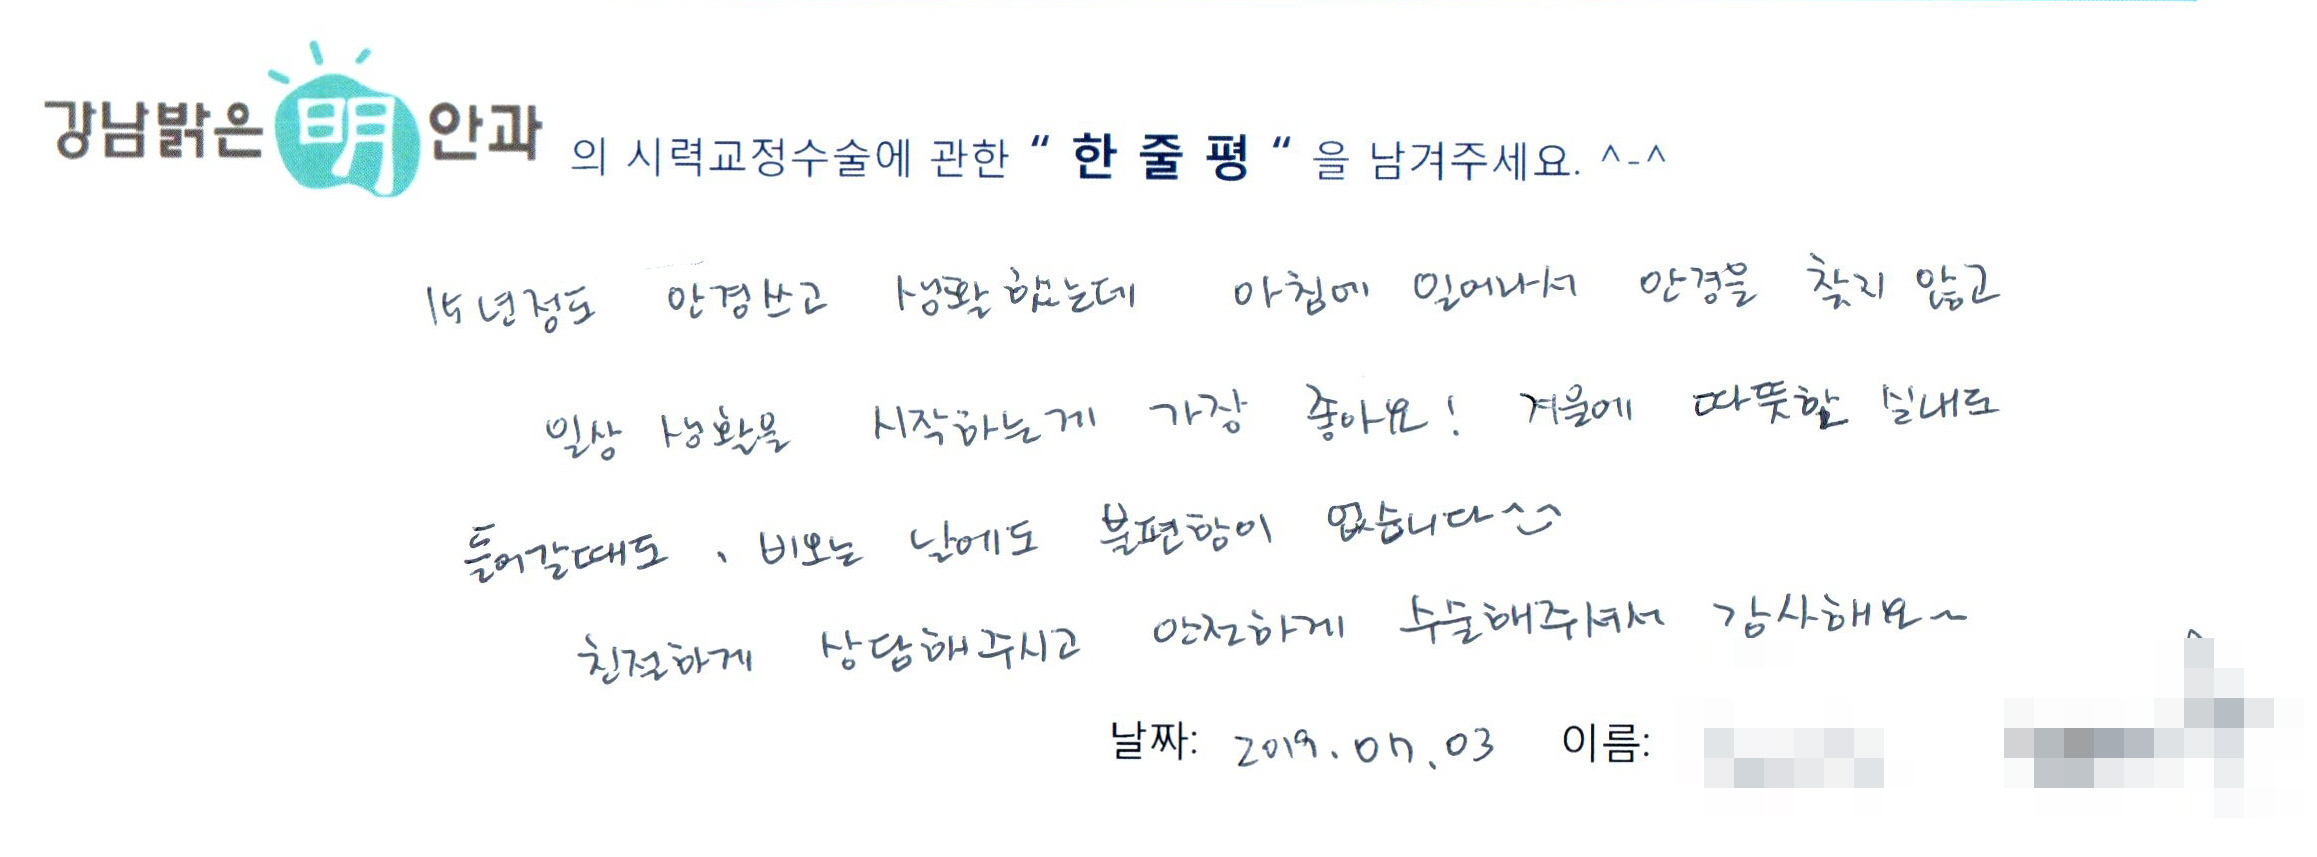 강남밝은明안과 의 시력교정수술에 관한 “ 한 줄 평 “ 을 남겨주세요. ^-^
15년정도 안경쓰고 생활했는데 아침에 일어나서 안경을 찾지 않고
일상 생활을 시작하는게 가장 좋아요! 겨울에 따뜻한 실내로
들어갈때도, 비오는 날에도 불편함이 없습니다^^
친절하게 상담해주시고 안전하게 수술해주셔서 감사해요~
날짜: 2019.07.03 이름: